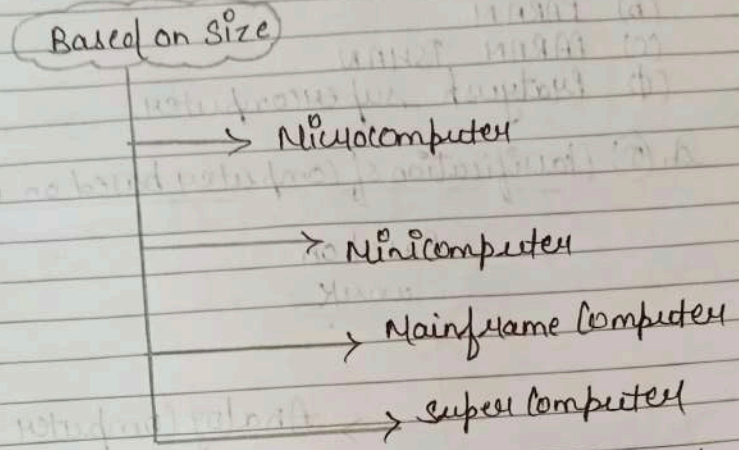 Based on Size
Microcomputer
Minicomputer
Mainframe Computer
super Computer